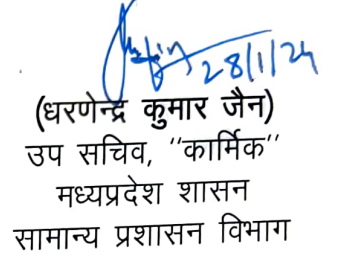 28/1/24
(धरणेन्द्र कुमार जैन)
उप सचिव, "कार्मिक"
मध्यप्रदेश शासन
सामान्य प्रशासन विभाग